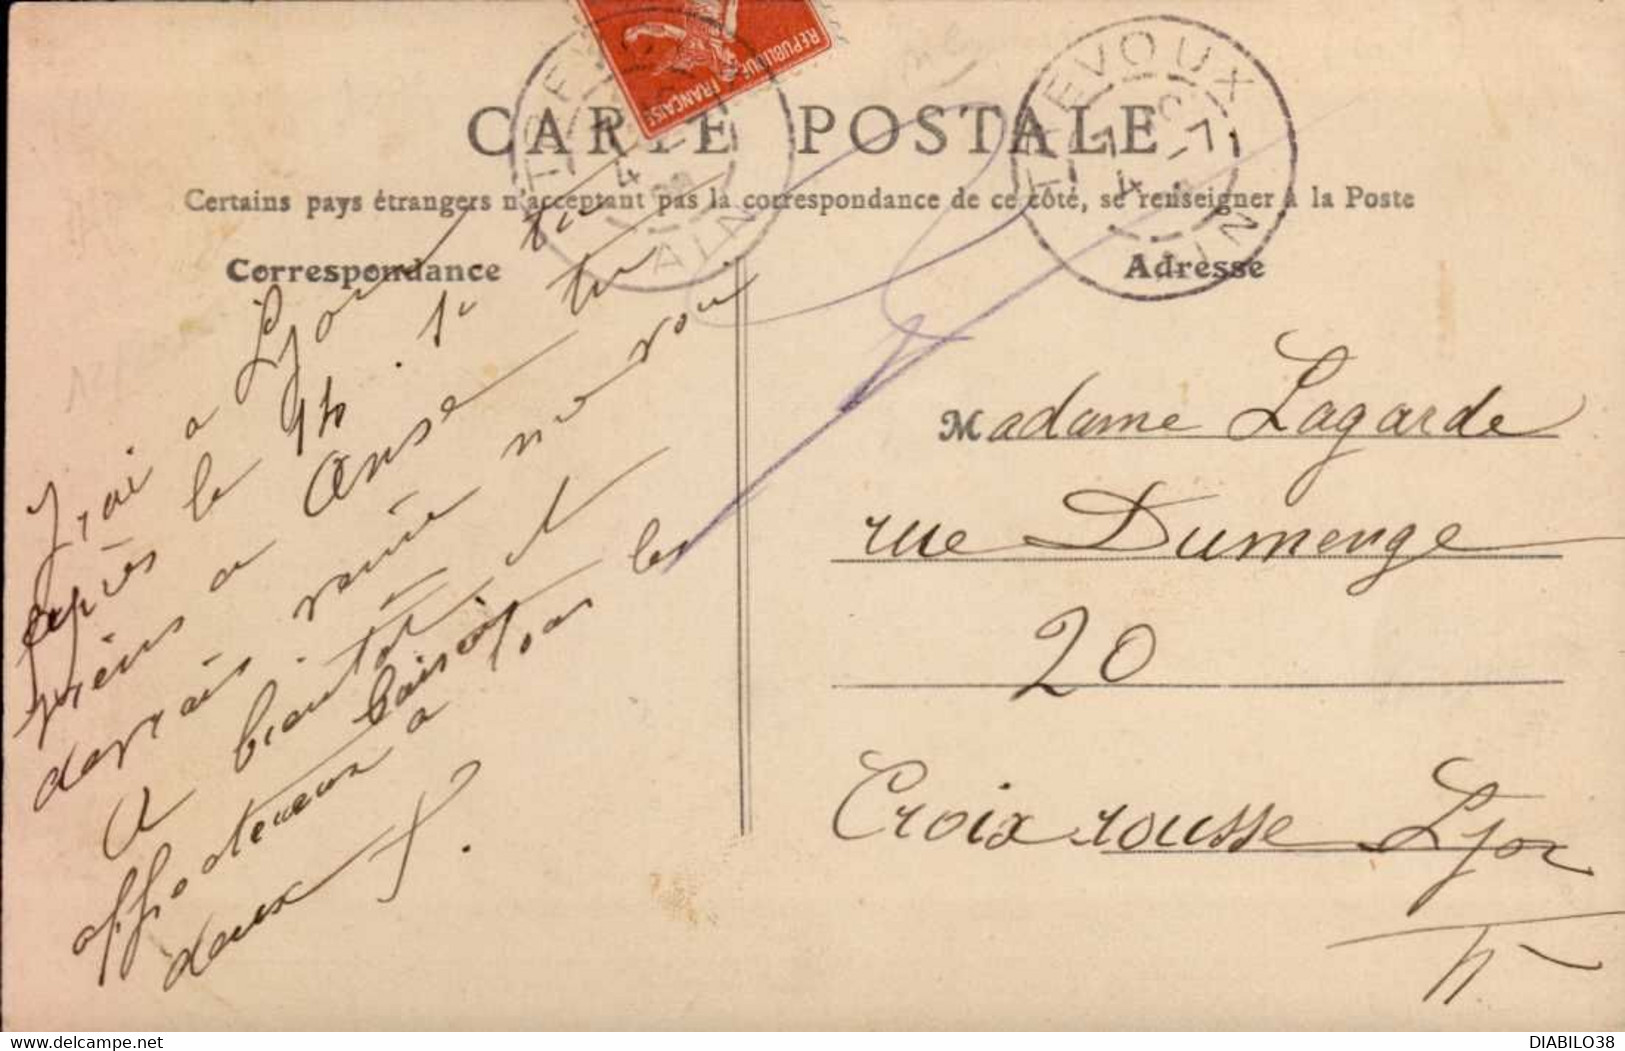 REPUBLIQUE FRANÇAISE
TREVOUX
AIN
TREVOUX
AIN
CARTE POSTALE
Certains pays étrangers n'acceptant pas la correspondance de ce côté, se renseigner à la Poste
Correspondance
Adresse
J'irai a Lyon
après le 14. si tu
viens a Anse tu
devrais venir me voir.
A bientôt et
affectueux baisers
a tous les
deux
Madame Lagarde
rue Dumenge
20
Croix rousse Lyon
DIABILO38